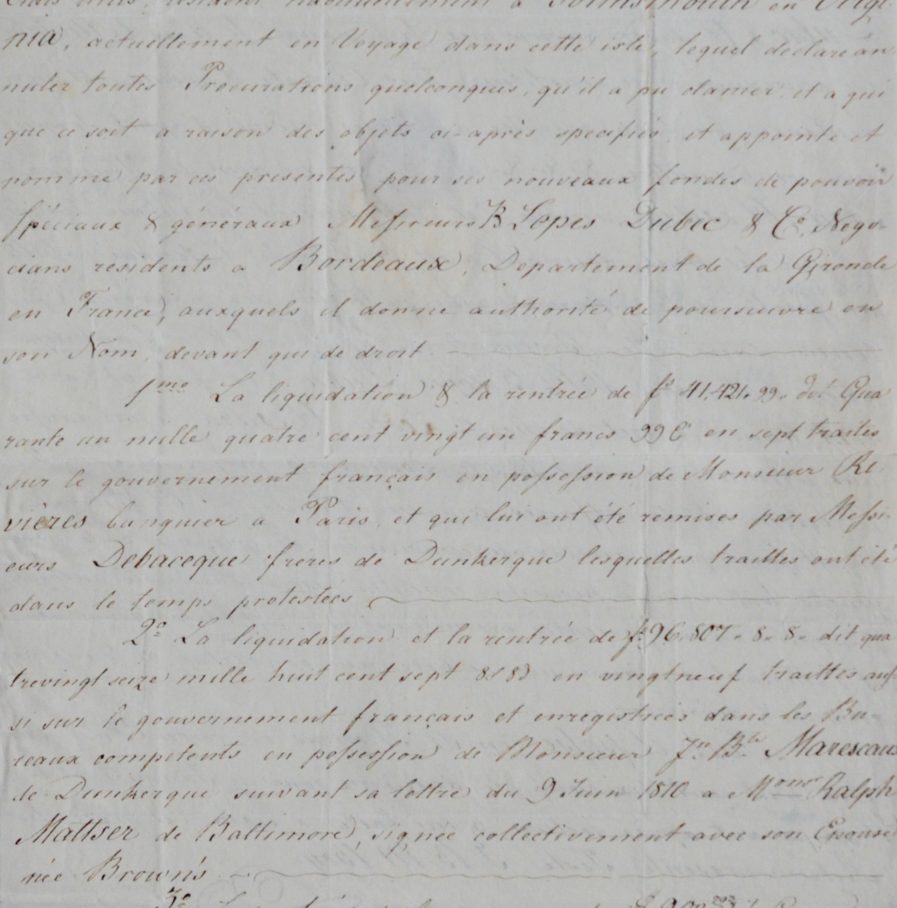 Etats Unis, résident habituellement à Portsmouth en Virgi-
nia, actuellement en Voyage dans cette isle, lequel déclare an
nuler toutes Procurations quelconques, qu'il a pu donner et a qui
que ce soit a raison des objets ci-après specifiés, et appointe et
nomme par ces presentes pour ses nouveaux fondés de pouvoir
Spéciaux & généraux Messieurs B Lopes Dubec & Co. Nego-
cians residents a Bordeaux, Departement de la Gironde
en France, auxquels il donne authorité de poursuivre en
son Nom, devant qui de droit
1mo La liquidation & la rentrée de fs 41,421.99. dit Qua
rante un mille quatre cent vingt un francs 99 C en sept traites
sur le gouvernement français en possession de Monsieur Re
vières banquier a Paris, et qui lui ont été remises par Messi-
eurs Debacque freres de Dunkerque lesquelles traittes ont été
dans le temps protestées
2o La liquidation et la rentrée de fs 96.807.8.8. dit qua
trevingt seize mille huit cent sept 8s 8d en vingtneuf traittes aus
si sur le gouvernement français et enregistrées dans les Bu-
reaux competents en possession de Monsieur Jn Bte Marescaux
de Dunkerque suivant sa lettre du 9 Juin 1810 a Monsr Ralph
Mattser de Baltimore, signée collectivement avec son Epouse
née Brown's
3o